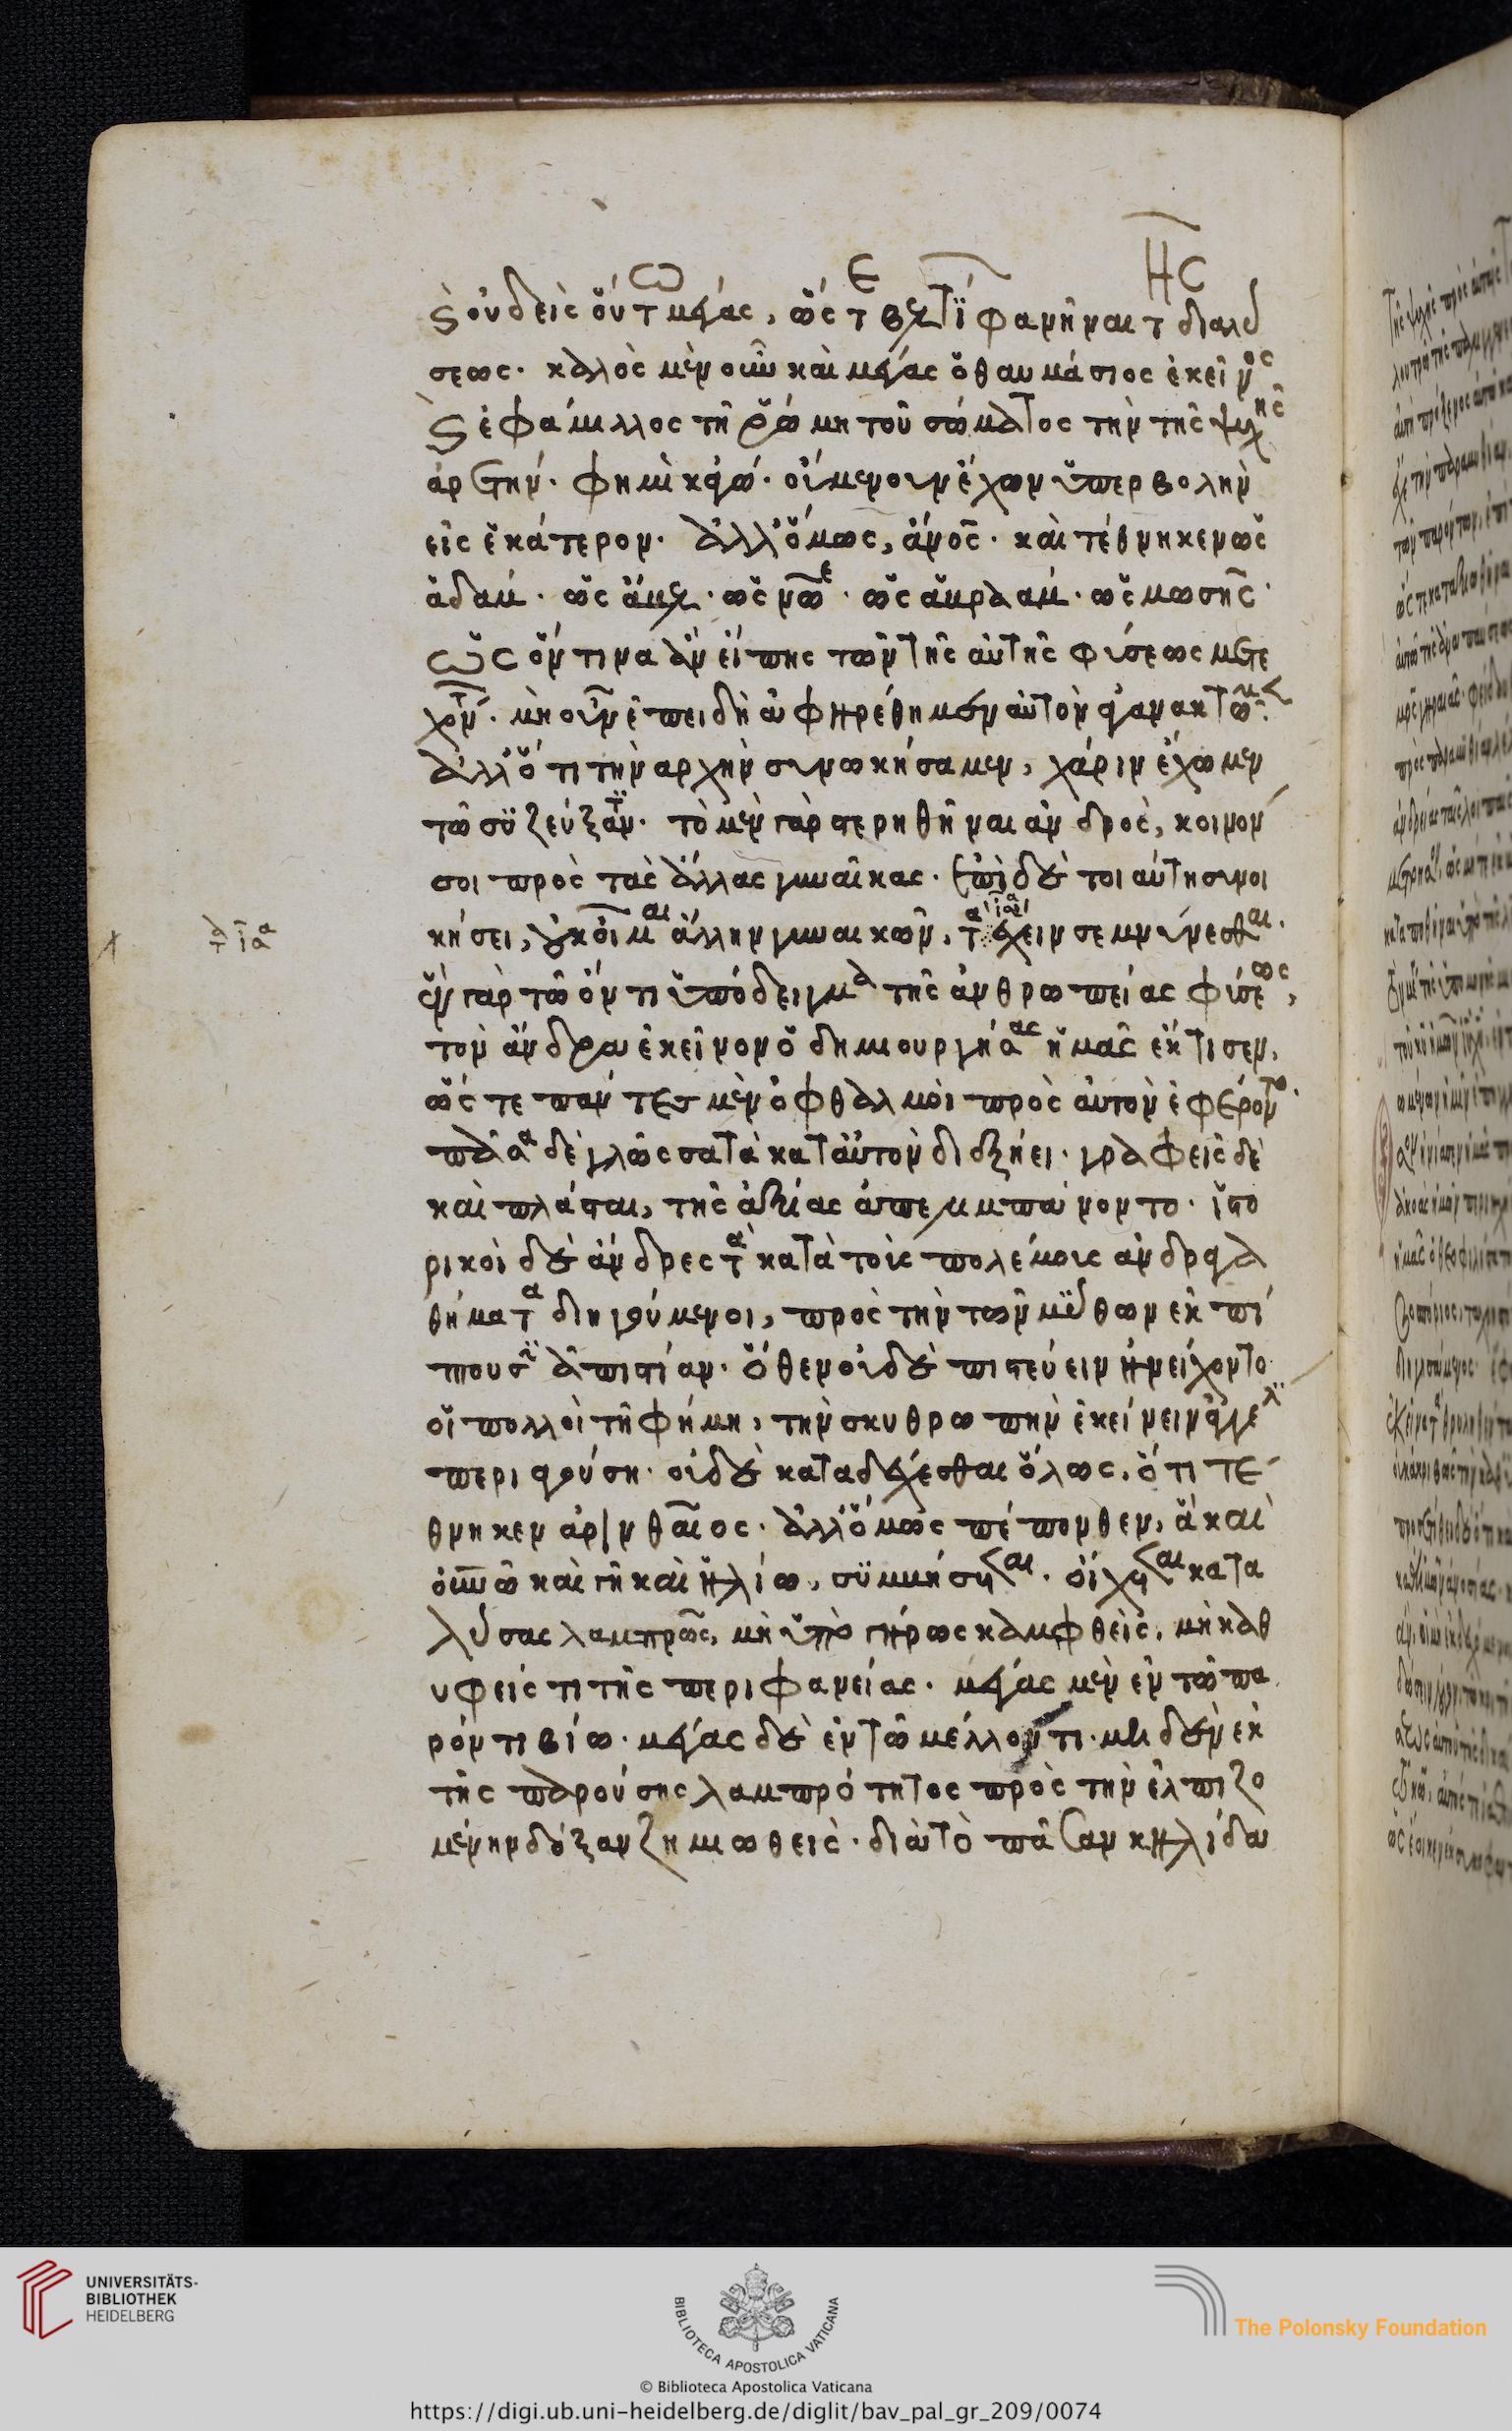 καὶ οὐδεὶς οὕτω μέγας, ὥστε βελτί φανῆναι τῆς διαλύ
σεως. καλὸς μὲν οὖν καὶ μέγας ὁ θαυμάσιος ἐκεῖνος
καὶ ἐφάμιλλος τῆ ῥώμη τοῦ σώματος τὴν τῆς ψυχῆς
ἀρετὴν. φημὶ κἀγώ. οἷμενουν ἔχων ὑπερβολὴν
εἰς ἑκάτερον. ἀλλ' ὅμως, ἄνος. καὶ τέθνηκεν ὡς
ἀδάμ. ὡς ἄβελ. ὡς νῶε. ὡς ἀβραάμ. ὡς μωσῆς.
ὡς ὅντινα ἂν εἴπης τῶν τῆς αὐτῆς φύσεως μετε
χόντων. μὴ οὖν ἐπειδὴ ἀφηρέθημεν αὐτὸν ἀγανακτῶμεν.
ἀλλ' ὅτι τὴν ἀρχὴν συνωκήσαμεν, χάριν ἔχωμεν
τῶ συζεύξαντι. τὸ μὲν γὰρ στερηθῆναι ἀνδρὸς, κοινὸν
σοι πρὸς τὰς ἄλλας γυναῖκας. ἐπὶ δὲ τοιαύτη συνοι
κήσει, οὐκ οἶμαι ἄλλην γυναικῶν, τὰ ἴσα ἔχειν σεμνύνεσθαι.
ἦν γὰρ τῶ ὄντι ὑπόδειγμα τῆς ἀνθρωπείας φύσεως,
τὸν ἄνδρα ἐκεῖνον ὁ δημιουργήσας ἡμᾶς ἔκτισεν,
ὥστε πάντες μὲν ὀφθαλμοὶ πρὸς αὐτὸν ἐφέροντο.
πᾶσα δὲ γλῶσσα τὰ κατ' αὐτὸν διεξήει. γραφεῖς δὲ
καὶ πλάσται, τῆς ἀξίας ἀπελιμπάνοντο. ἱστο
ρικοὶ δὲ ἄνδρες τὰ κατὰ τοὺς πολέμους ἀνδραγα
θήματα διηγούμενοι, πρὸς τὴν τῶν μύθων ἐκπί
πτουσιν ἀπιστίαν. ὅθεν οὐδὲ πιστεύειν ἠνείχοντο
οἱ πολλοὶ τῆ φήμη, τὴν σκυθρωπὴν ἐκείνειν ἀγγελί
περιφερούση. οὐδὲ καταδέχεσθαι ὅλως, ὅτι τέ
θνηκεν ἀρινθαῖος. ἀλλ' ὅμως πέπονθεν, ἃ καὶ
οὐνῶ καὶ γῆ καὶ ἡλίω, συμβήσεται. οἴχεται κατα
λύσας λαμπρῶς, μὴ ὑπὸ γήρως καμφθεὶς, μὴ καθ
υφείς τι τῆς περιφανείας. μέγας μὲν ἐν τῶ πα
ρόντι βίω. μέγας δὲ ἐν τῶ μέλλοντι. μηδὲν ἐκ
τῆς παρούσης λαμπρότητος πρὸς τὴν ἐλπιζο
μένην δόξαν ζημιωθεὶς. διὰ τὸ πᾶσαν κηλίδα
τ ἴσα
UNIVERSITÄTS-
BIBLIOTHEK
HEIDELBERG
BIBLIOTECA APOSTOLICA VATICANA
© Biblioteca Apostolica Vaticana
The Polonsky Foundation
https://digi.ub.uni-heidelberg.de/diglit/bav_pal_gr_209/0074